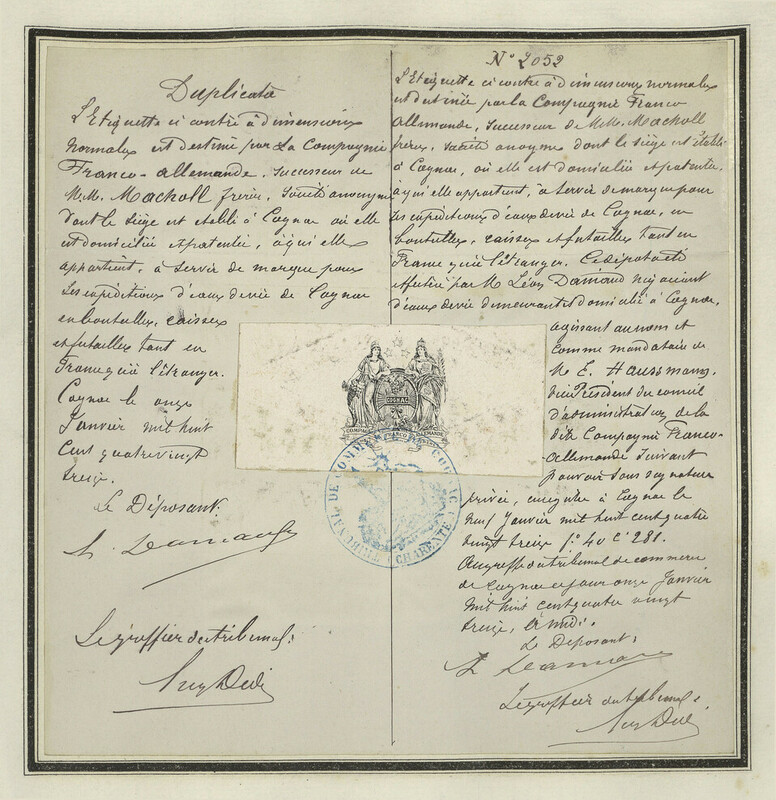 Duplicata
L'Etiquette ci contre à dimensions
normales est destinée par la Compagnie
Franco-allemande, Successeur de
M.M. Macholl frères, Société anonyme
dont le siège est établi à Cognac où elle
est domiciliée et patentée, à qui elle
appartient, à servir de marque pour
les expéditions d'eaux de vie de Cognac
en bouteilles, caisses
et futailles tant en
France qu'à l'étranger.
Cognac le onze
Janvier mil huit
cent quatre vingt
treize.
Le Déposant.
Le greffier du tribunal:
N° 2052
L'Etiquette ci contre à dimensions normales
est destinée par la Compagnie Franco
Allemande, Successeur de M.M. Macholl
frères, Société anonyme dont le siège est établi
à Cognac, où elle est domiciliée et patentée,
à qui elle appartient, à servir de marque pour
les expéditions d'eaux de vie de Cognac, en
bouteilles, caisses et futailles tant en
France qu'à l'étranger. Ce dépôt a été
effectué par M. Léon Damaud négociant
d'eaux de vie demeurant et domicilié à Cognac,
agissant au nom et
comme mandataire de
M. E. Haussmann,
Vice Président du conseil
d'administration de la
dite Compagnie Franco-
Allemande suivant
pouvoir sous signature
privée, enregistré à Cognac le
neuf Janvier mil huit cent quatre
vingt treize f° 40 c° 281.
Au greffe du tribunal de commerce
de Cognac ce jour onze Janvier
mil huit cent quatre vingt
treize, à midi.
Le Déposant:
Le greffier du tribunal:
COGNAC
TRIBUNAL DE COMMERCE COGNAC (CHARENTE)